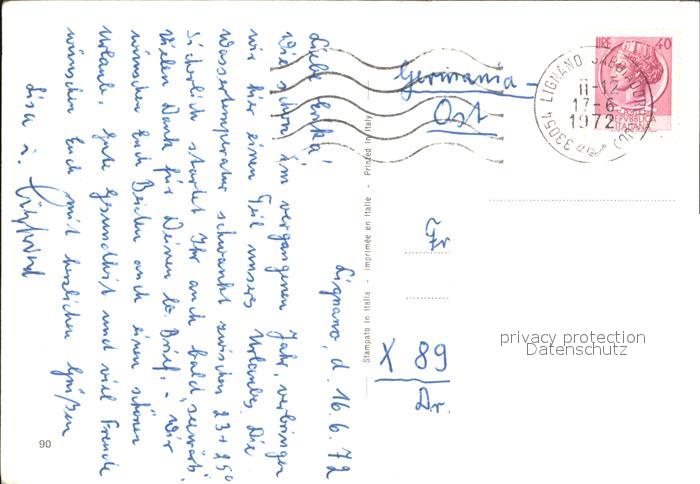 Lignano, d. 16.6.72
Liebe Erika!
Wie schon im vergangenen Jahr, verbringen
wir hier einen Teil unseres Urlaubs. Die
Wassertemperatur schwankt zwischen 23+25°
Sicherlich startet Ihr auch bald „seewärts“.
Vielen Dank für Deinen lb. Brief. – Wir
wünschen Euch Beiden auch einen schönen
Urlaub, gute Gesundheit und viel Freude
wünschen Euch mit herzlichen Grüßen
Lisa u.
90
Stampato in Italia - Imprimée en Italie - Printed in Italy
Germania -
Ost
Fr
X 89
Dr.
LIRE 40
REPVBBLICA
ITALIANA
33054 LIGNANO SABBIADORO (UD)
11-12
17-6
1972
privacy protection
Datenschutz